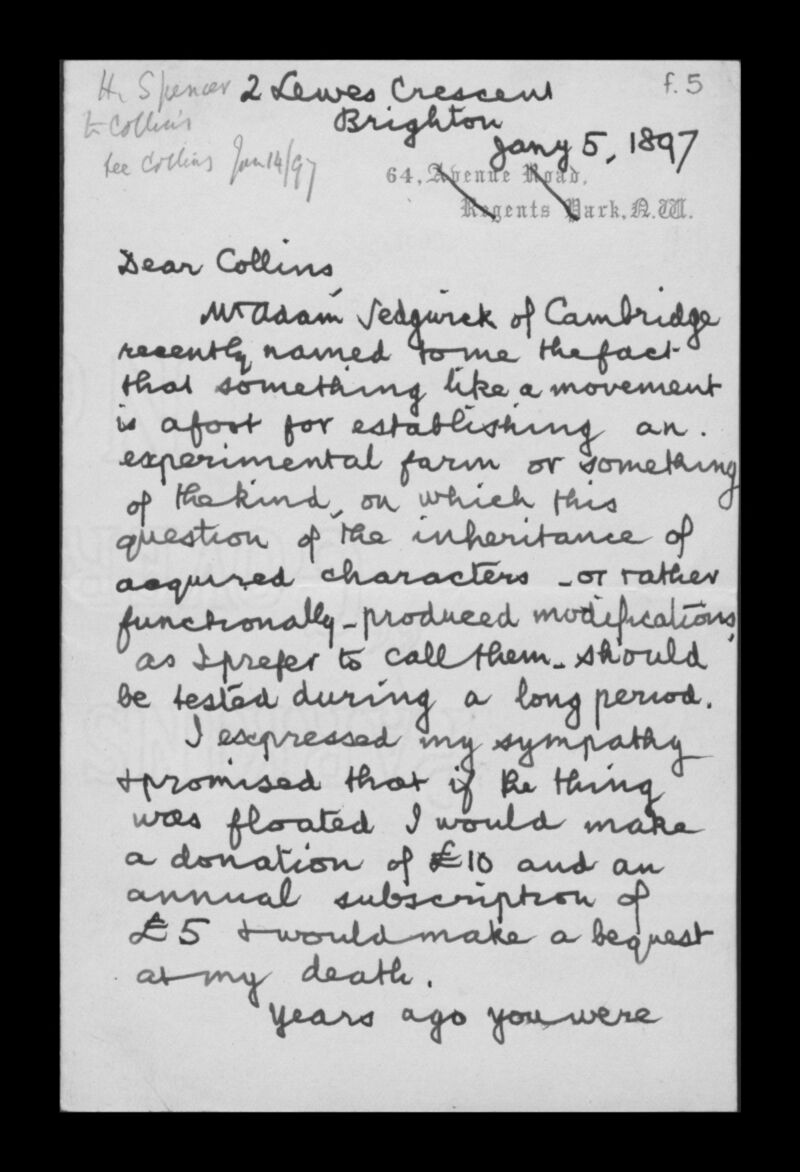 H. Spencer
to Collins
see Collins Jan 14/97
f. 5
2 Lewes Crescent
Brighton
Jany 5, 1897
64, Avenue Road,
Regents Park, N.W.
Dear Collins,
Mr Adam Sedgwick of Cambridge
recently named to me the fact
that something like a movement
is afoot for establishing an
experimental farm or something
of the kind, on which this
question of the inheritance of
acquired characters - or rather
functionally-produced modifications,
as I prefer to call them - should
be tested during a long period.
I expressed my sympathy
& promised that if the thing
was floated I would make
a donation of £10 and an
annual subscription of
£5 & would make a bequest
at my death.
Years ago you were